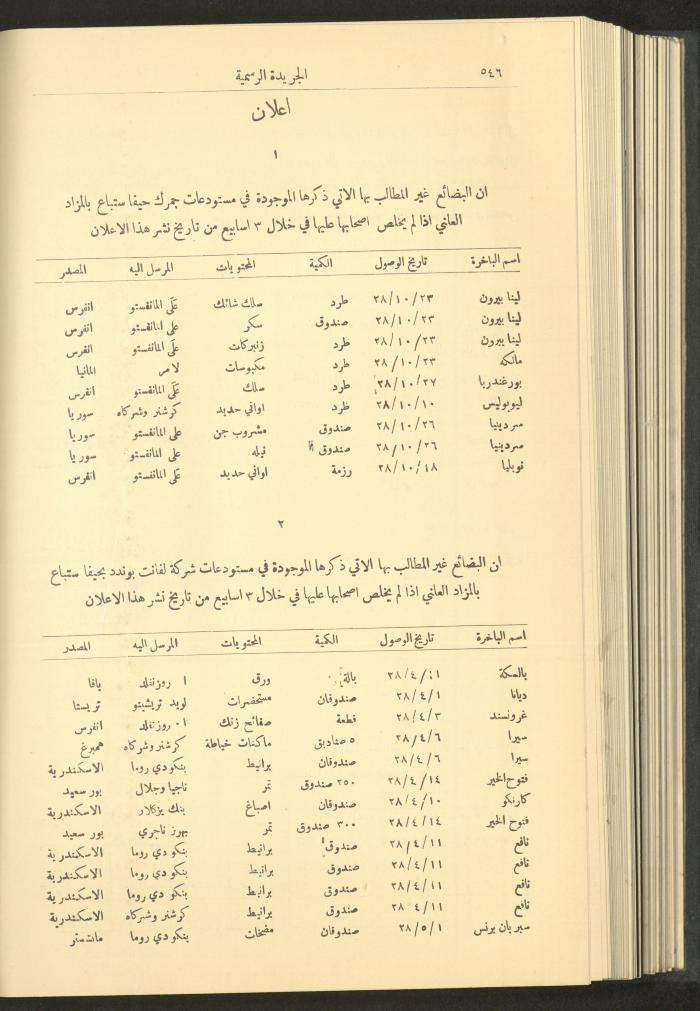 ٥٤٦
الجريدة الرسمية
اعلان
١
ان البضائع غير المطالب بها الاتي ذكرها الموجودة في مستودعات جمرك حيفا ستباع بالمزاد
العاني اذا لم يخلص اصحابها عليها في خلال ٣ اسابيع من تاريخ نشر هذا الاعلان
اسم الباخرة تاريخ الوصول الكمية المحتويات المرسل اليه المصدر
لينا بيرون ٢٨/١٠/٢٣ طرد سلك شائك على المانفستو انفرس
لينا بيرون ٢٨/١٠/٢٣ صندوق سكر على المانفستو انفرس
لينا بيرون ٢٨/١٠/٢٣ طرد زنبركات على المانفستو انفرس
مانكه ٢٨/١٠/٢٣ طرد مكبوسات لامر المانيا
بورغندريا ٢٨/١٠/٢٧ طرد سلك على المانفستو انفرس
ليوبوليس ٢٨/١٠/١٠ طرد اواني حديد كرشنر وشركاه سوريا
سردينيا ٢٨/١٠/٢٦ صندوق مشروب جن على المانفستو سوريا
سردينيا ٢٨/١٠/٢٦ صندوق نيله على المانفستو سوريا
فوبليا ٢٨/١٠/٤٨ رزمة اواني حديد على المانفستو انفرس
٢
ان البضائع غير المطالب بها الاتي ذكرها الموجودة في مستودعات شركة لفانت بوندد بحيفا ستباع
بالمزاد العاني اذا لم يخلص اصحابها عليها في خلال ٣ اسابيع من تاريخ نشر هذا الاعلان
اسم الباخرة تاريخ الوصول الكمية المحتويات المرسل اليه المصدر
بالمكة ٢٨/٤/١ بالة ورق ا روزنفلد يافا
ديانا ٢٨/٤/١ صندوقان مستحضرات لويد تريشينو تريستا
غرونسند ٢٨/٤/٣ قطعة صفائح زنك ا٠ روزنفلد انفرس
سيرا ٢٨/٤/٦ ٥ صناديق ماكنات خياطة كرشنر وشركاه همبرغ
سيرا ٢٨/٤/٦ صندوقان برانيط بنكو دي روما الاسكندرية
فتوح الخير ٢٨/٤/١٤ ٢٥٠ صندوق تمر ناجيا وجلال بور سعيد
كارنكو ٢٨/٤/١٠ صندوقان اصباغ بنك يزكلار الاسكندرية
فتوح الخير ٢٨/٤/١٤ ٣٠٠ صندوق تمر بهرز تاجري بور سعيد
نافع ٢٨/٤/١١ صندوق برانيط بنكو دي روما الاسكندرية
نافع ٢٨/٤/١١ صندوق برانيط بنكو دي روما الاسكندرية
نافع ٢٨/٤/١١ صندوق برانيط بنكو دي روما الاسكندرية
نافع ٢٨/٤/١١ صندوق برانيط كرشنر وشركاه الاسكندرية
سيربان برنس ٢٨/٥/١ صندوقان مضخات بنكو دي روما مانشستر